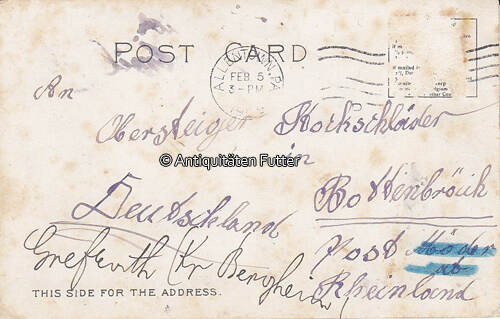 POST CARD
ALLENTOWN, PA
FEB. 5
3-PM
An
Obersteiger Kockschläder
in
© Antiquitäten Futter
Bottenbröich
Deutschland
Post
Grefrath (Kr Bergheim)
Rheinland
THIS SIDE FOR THE ADDRESS.